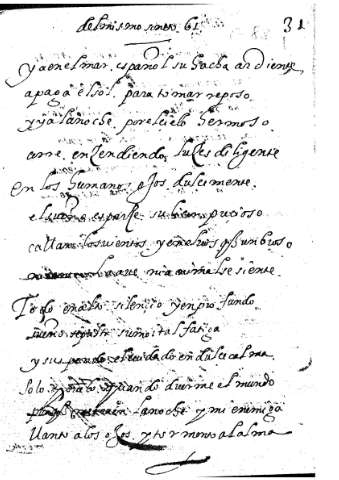 del mismo soneto 61 31
ya en el mar español su hacha ardiente
apaga el sol para tomar reposo
y ya la noche por el cielo hermoso
corre encendiendo luzes diligente
en los humanos ojos dulcemente
el sueño esparze su licor precioso
callan los vientos y en el
ni aue ni animal se siente
Todo en alto silencio y en profundo
sueño su mortal fatiga
y sus oluida en dulce calma
solo quando duerme el mundo
la noche y mi enemiga
llanto a los ojos y tormento al alma